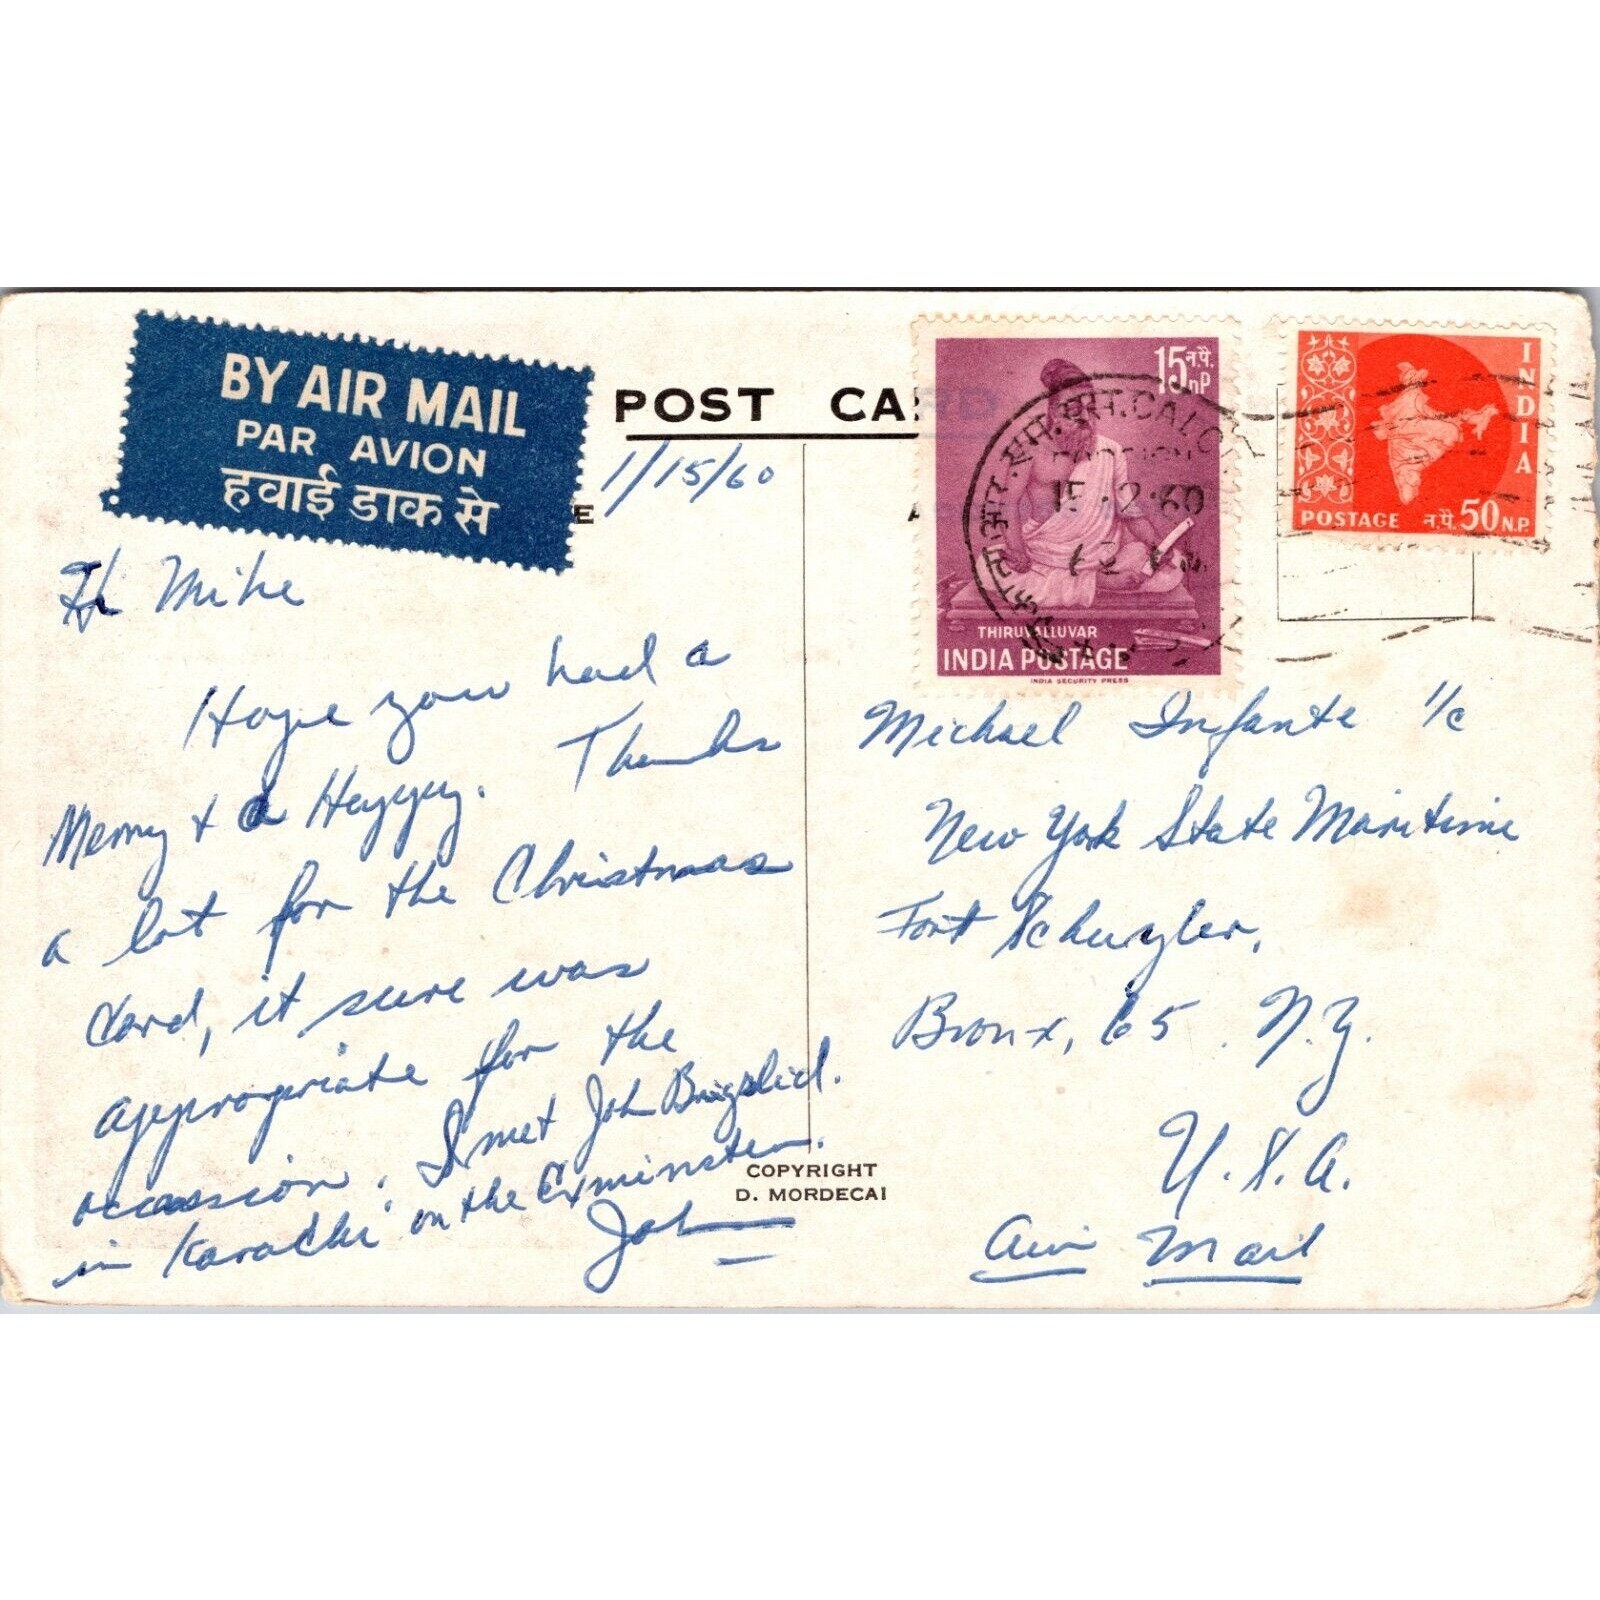 BY AIR MAIL
PAR AVION
हवाई डाक से
POST CARD
1/15/60
Mike
Hope you had a
Merry + a Happy. Thanks
a lot for the Christmas
Card, it sure was
appropriate for the
occassion. I met John
in Karachi on the
John
COPYRIGHT
D. MORDECAI
15 न.पै.
nP
THIRUVALLUVAR
INDIA POSTAGE
INDIA SECURITY PRESS
2.60
INDIA
POSTAGE न.पै. 50 N.P.
Michael Infante 1/c
New York State Maritime
Fort Schuyler,
Bronx, 65. N.Y.
U.S.A.
Air Mail